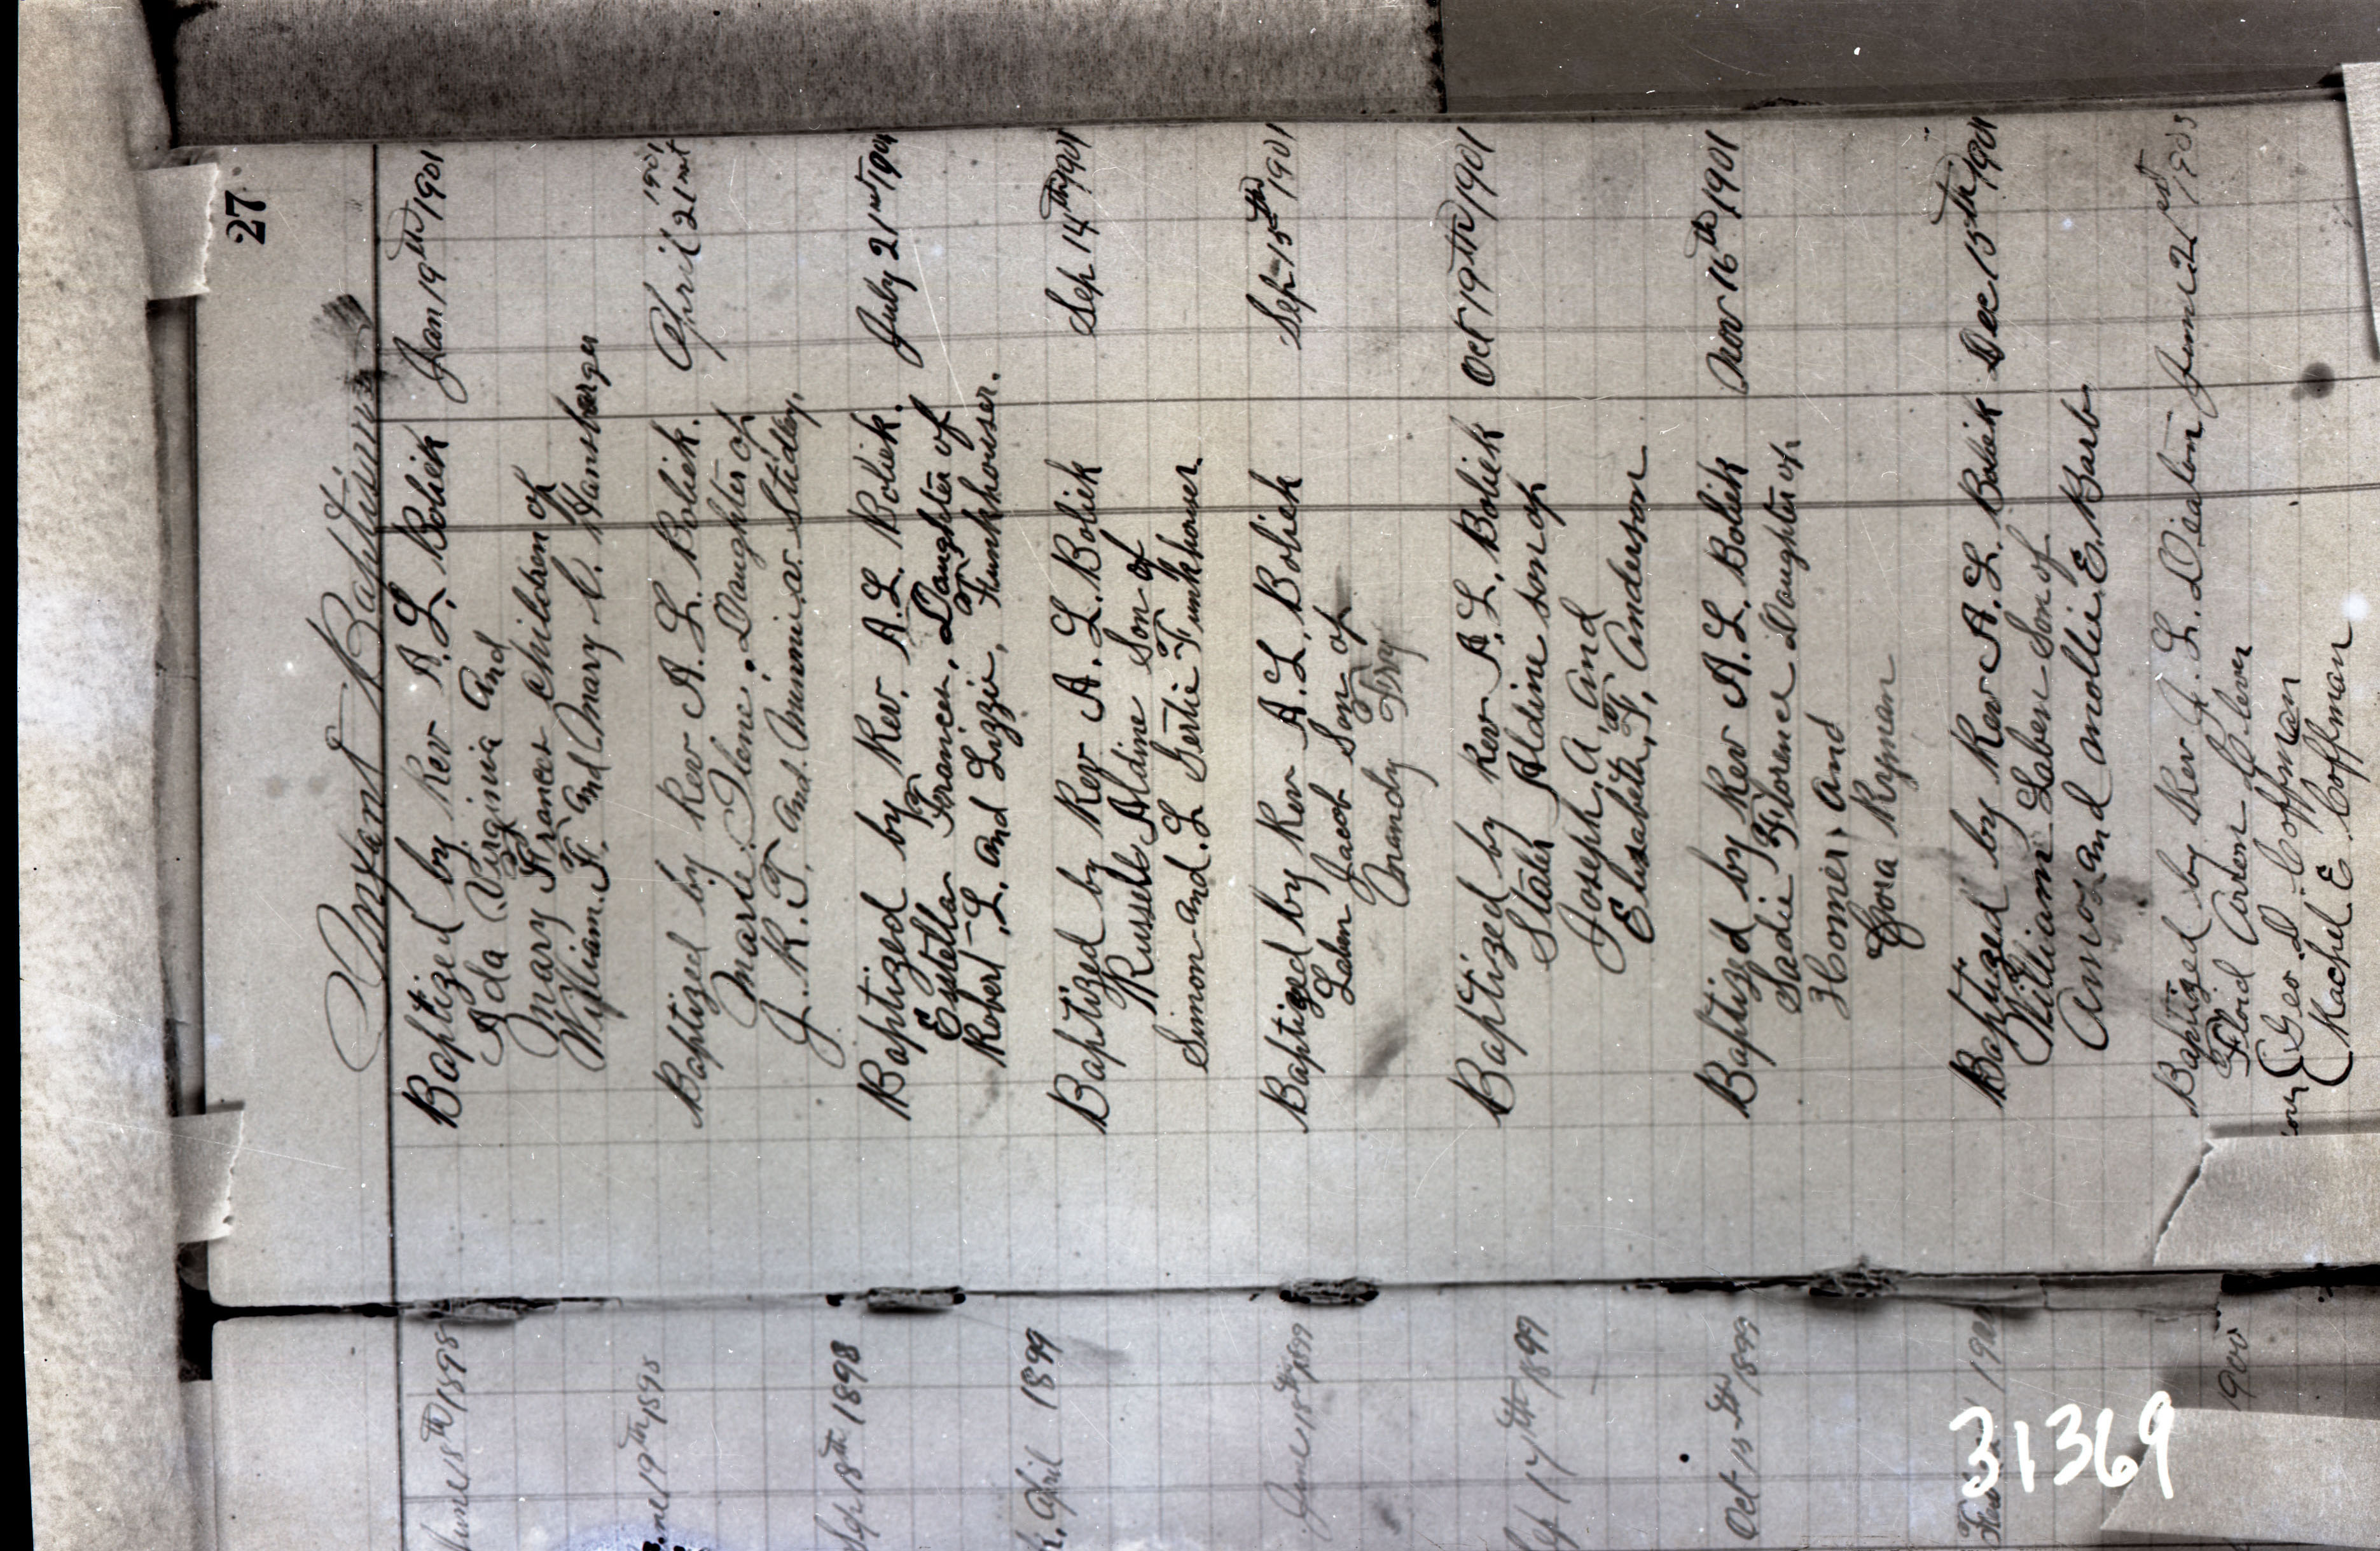 27
Infant Baptisms
Baptized by Rev A. L. Boliek Jan 19th 1901
Ida Virginia and
Mary Frances Children of
William F. and Mary C. Hansberger
Baptized by Rev A. L. Boliek. April 21st 1901
Marie Ilene, Daughter of
J. R. T. and Minnie V. Stidley.
Baptized by Rev. A. L. Boliek. July 21st 1901
Estella Frances, Daughter of
Robert L. and Lizzie, Funkhouser.
Baptized by Rev A. L. Boliek Sep 14th 1901
Russele Aldine Son of
Simon and L Gertie Funkhouser.
Baptized by Rev A. L. Boliek Sep 15th 1901
Jacob Son of
Mandy Fry
Baptized by Rev A. L. Boliek Oct 19th 1901
Slater Aldine son of
Joseph, A, and
Elisabeth, F, Anderson
Baptized by Rev A. L. Boliek Nov 16th 1901
Sadie Florence Daughter of
Homer, and
Dora Ryman
Baptized by Rev A. L. Boliek Dec 15th 1901
William Laben Son of
Amos and Mollie E. Barb
Baptized by Rev J. L. Deaton June 21st 1903
Floid Arden Clever
son Geo D. Coffman
Rachel E Coffman
June 18th 1898
June 19th 1898
Sep 18th 1898
April 1899
June 18th 1899
Sep 17th 1899
Oct 15th 1899
1900
31369